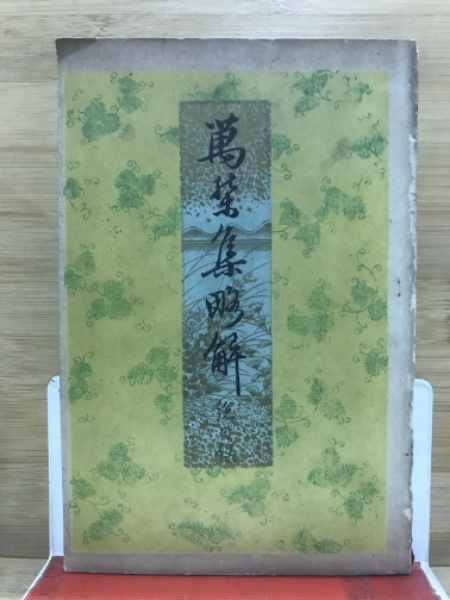 萬葉集略解